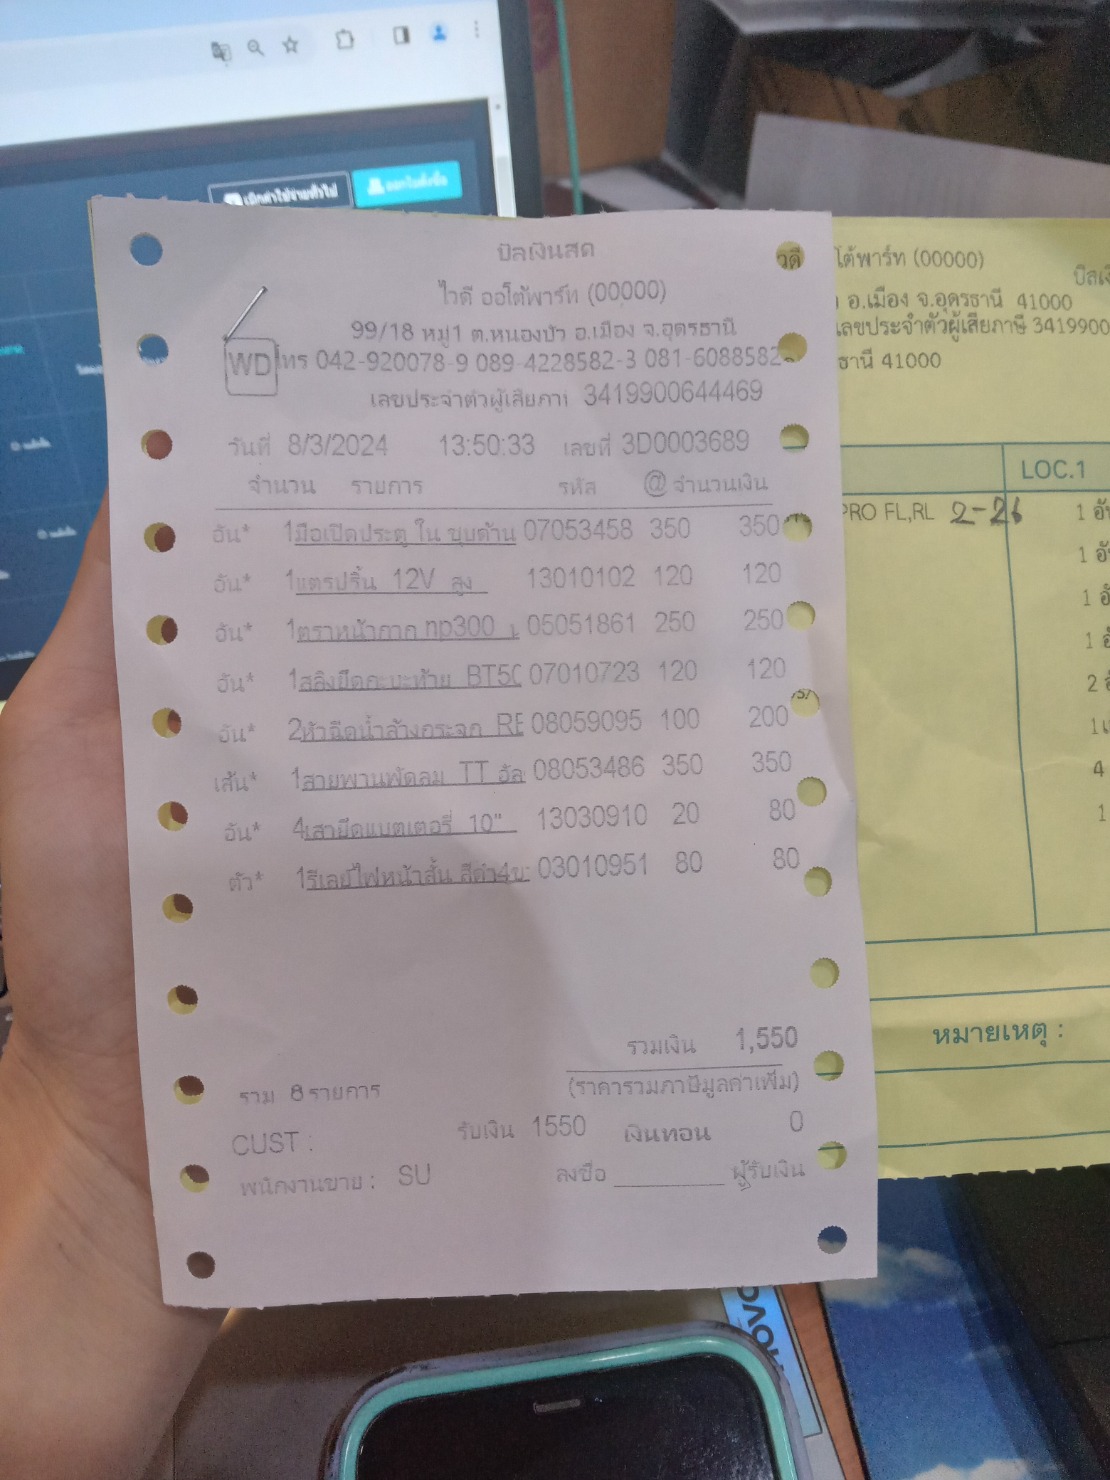 บิลเงินสด
ไวดี ออโต้พาร์ท (00000)
99/18 หมู่1 ต.หนองบัว อ.เมือง จ.อุดรธานี
WD โทร 042-920078-9 089-4228582-3 081-6088582
เลขประจำตัวผู้เสียภาษี 3419900644469
วันที่ 8/3/2024 13:50:33 เลขที่ 3D0003689
จำนวน รายการ รหัส @ จำนวนเงิน
อัน* 1มือเปิดประตู ใน ชุบด้าน 07053458 350 350
อัน* 1แตรปริ้น 12V สูง 13010102 120 120
อัน* 1ตราหน้ากาก np300 05051861 250 250
อัน* 1สลิงยึดกะบะท้าย BT50 07010723 120 120
อัน* 2หัวฉีดน้ำล้างกระจก RE 08059095 100 200
เส้น* 1สายพานพัดลม TT อัล 08053486 350 350
อัน* 4เสายึดแบตเตอรี่ 10" 13030910 20 80
ตัว* 1รีเลย์ไฟหน้าสั้น สีดำ4ข 03010951 80 80
รวมเงิน 1,550
(ราคารวมภาษีมูลค่าเพิ่ม)
รวม 8 รายการ
รับเงิน 1550 เงินทอน 0
CUST :
พนักงานขาย : SU ลงชื่อ ________ ผู้รับเงิน
โต้พาร์ท (00000)
บิลเงิ
อ.เมือง จ.อุดรธานี 41000
เลขประจำตัวผู้เสียภาษี 3419900
ธานี 41000
LOC.1
PRO FL,RL 2-26 1 อั
1 อั
1 อั
1 อั
2 อั
1
4
1
หมายเหตุ :